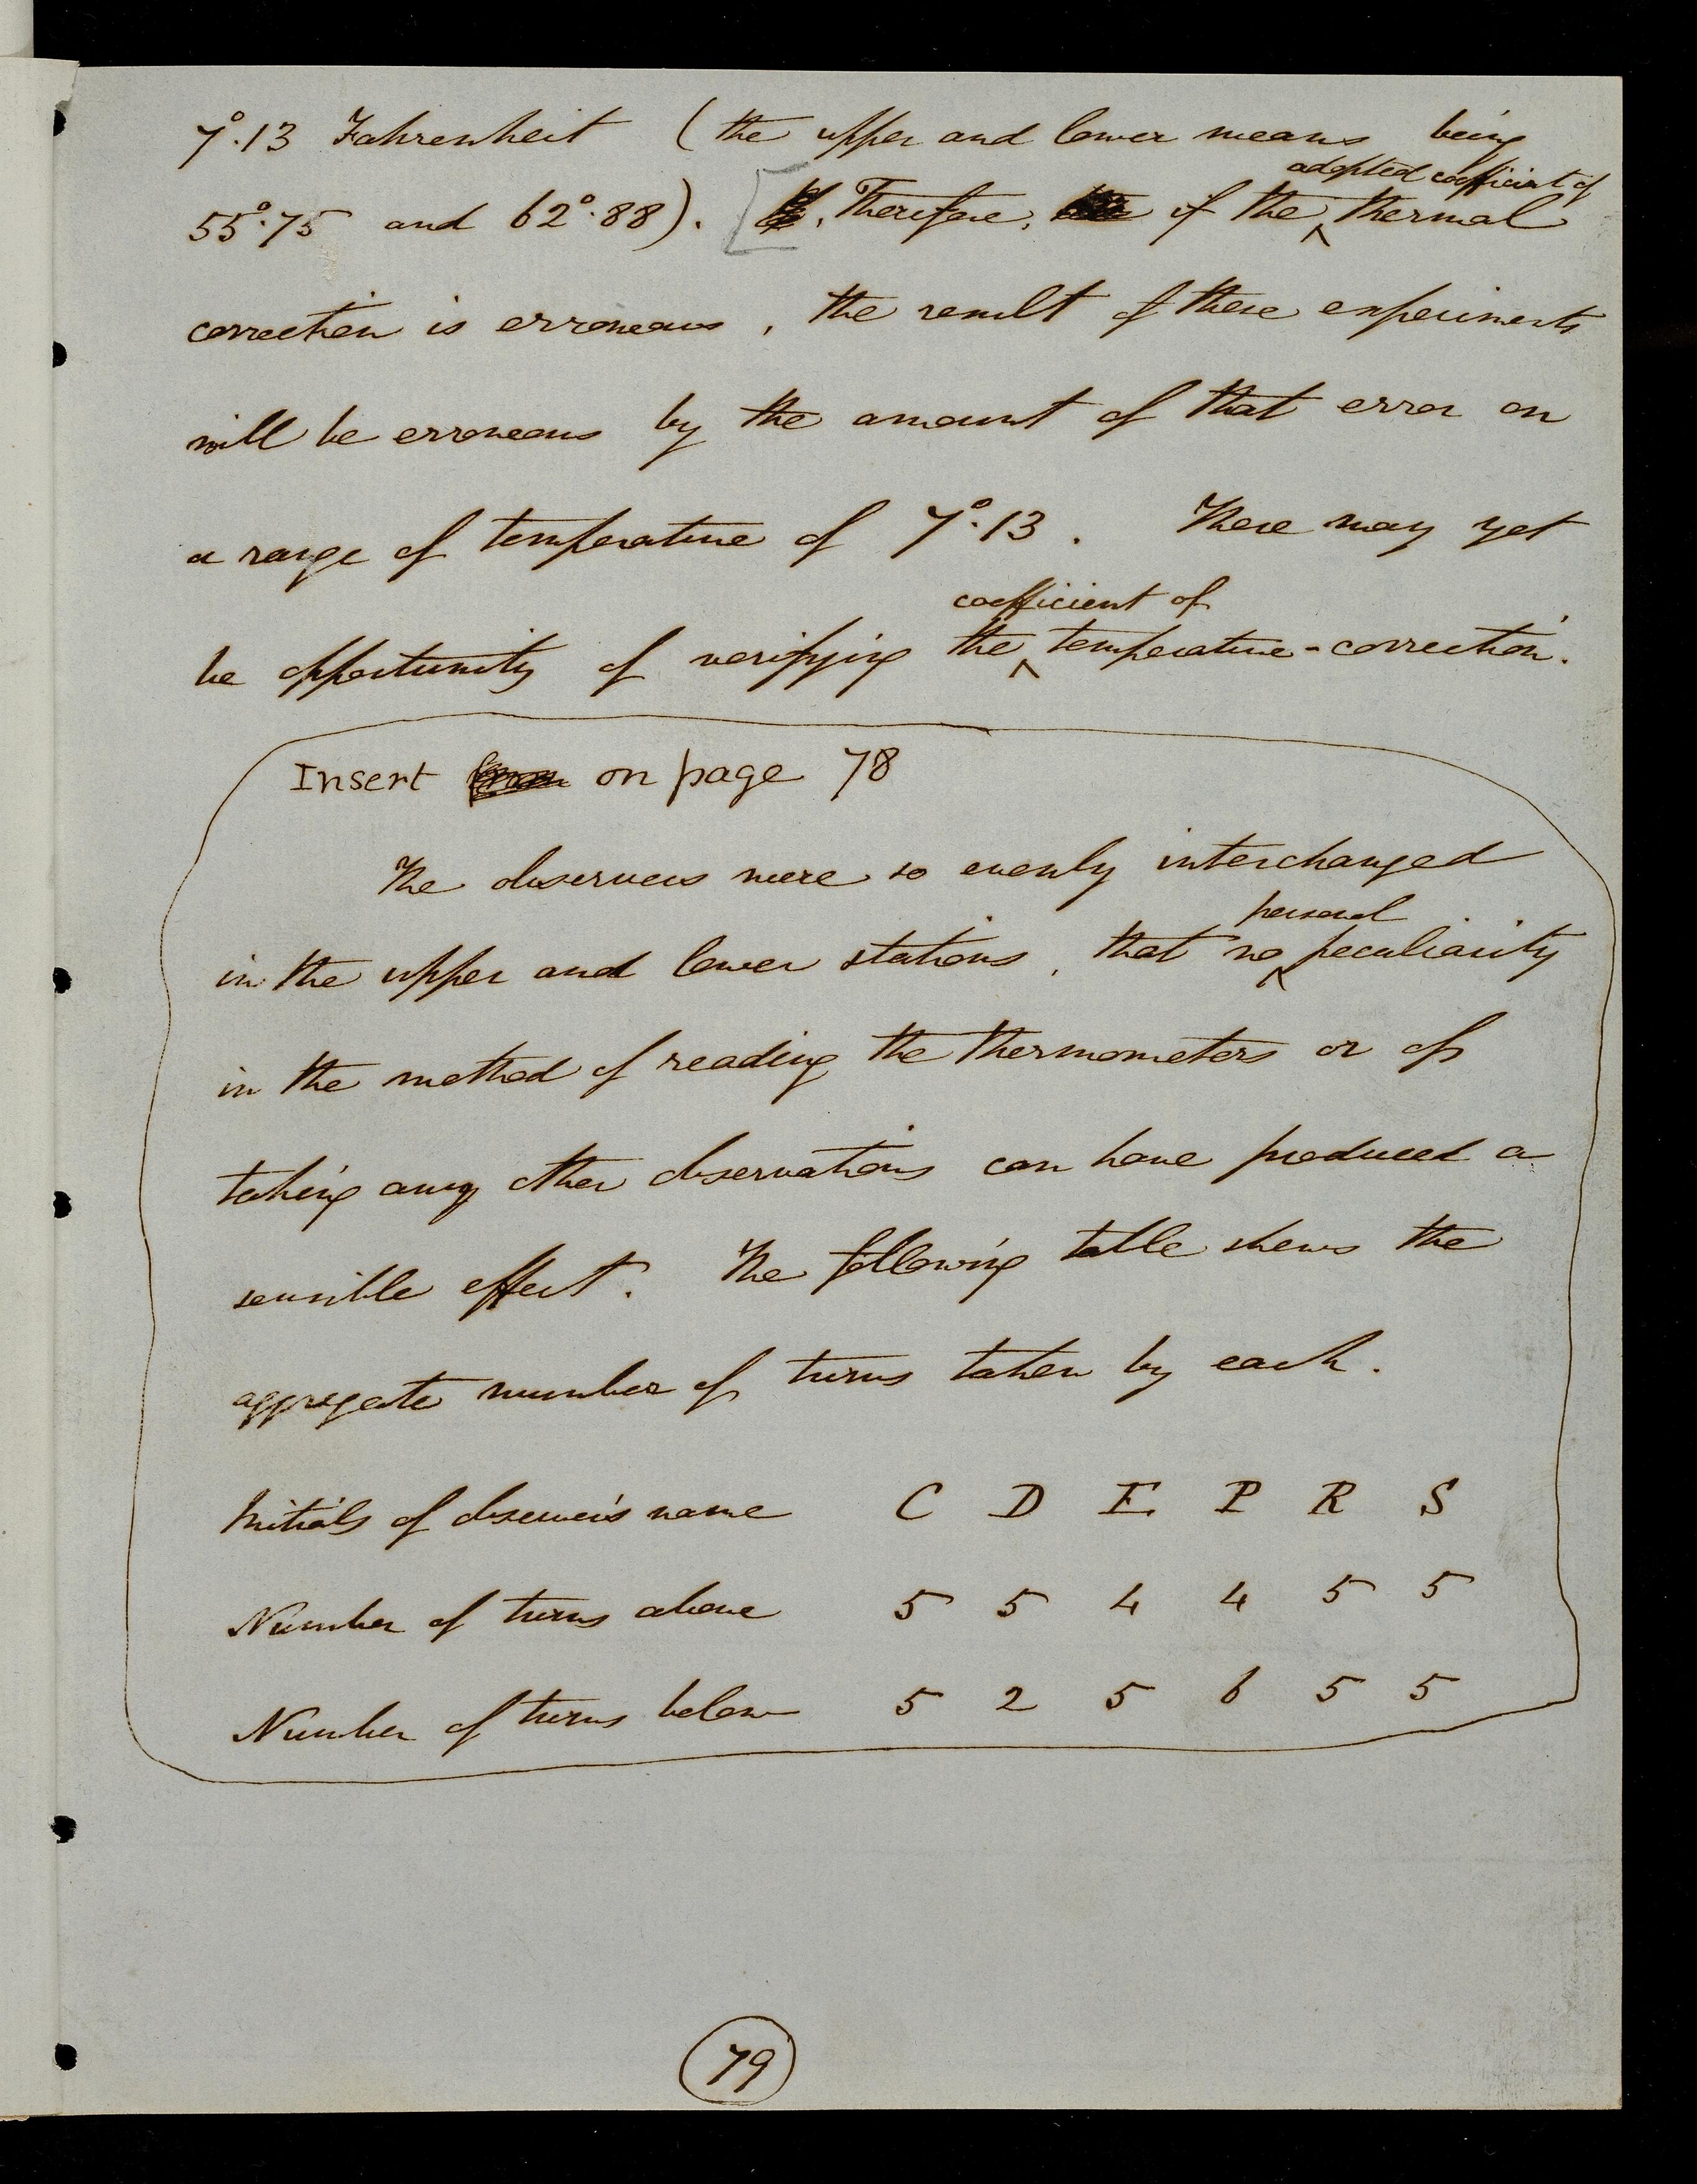 7°.13 Fahrenheit (the upper and lower means being
adopted coefficient of
55°.75 and 62°.88). [Therefore, if the ‸ thermal
correction is erroneous, the result of these experiments
will be erroneous by the amount of that error on
a range of temperature of 7°.13. There may yet
coefficient of
be opportunity of verifying the ‸ temperature-correction.
Insert on page 78
The observers were so evenly interchanged
personal
in the upper and lower stations, that no ‸ peculiarity
in the method of reading the thermometers or of
taking any other observations can have produced a
sensible effect. The following table shews the
aggregate number of turns taken by each.
Initials of observer's name C D E P R S
Number of turns above 5 5 4 4 5 5
Number of turns below 5 2 5 6 5 5
79